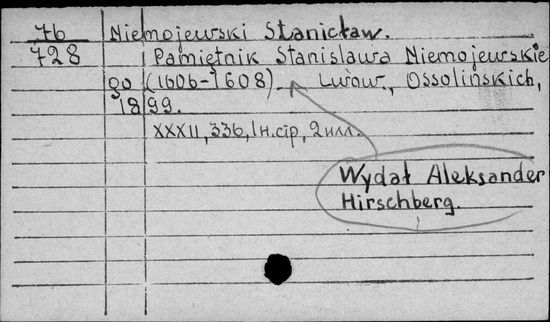 76 Niemojewski Stanisław.
728 Pamiętnik Stanislawa Niemojewskie
go (1606-1608). Lwow., Ossolińskich,
1899.
XXXII, 336, 1н.стр, 2илл.
Wydał Aleksander
Hirschberg.